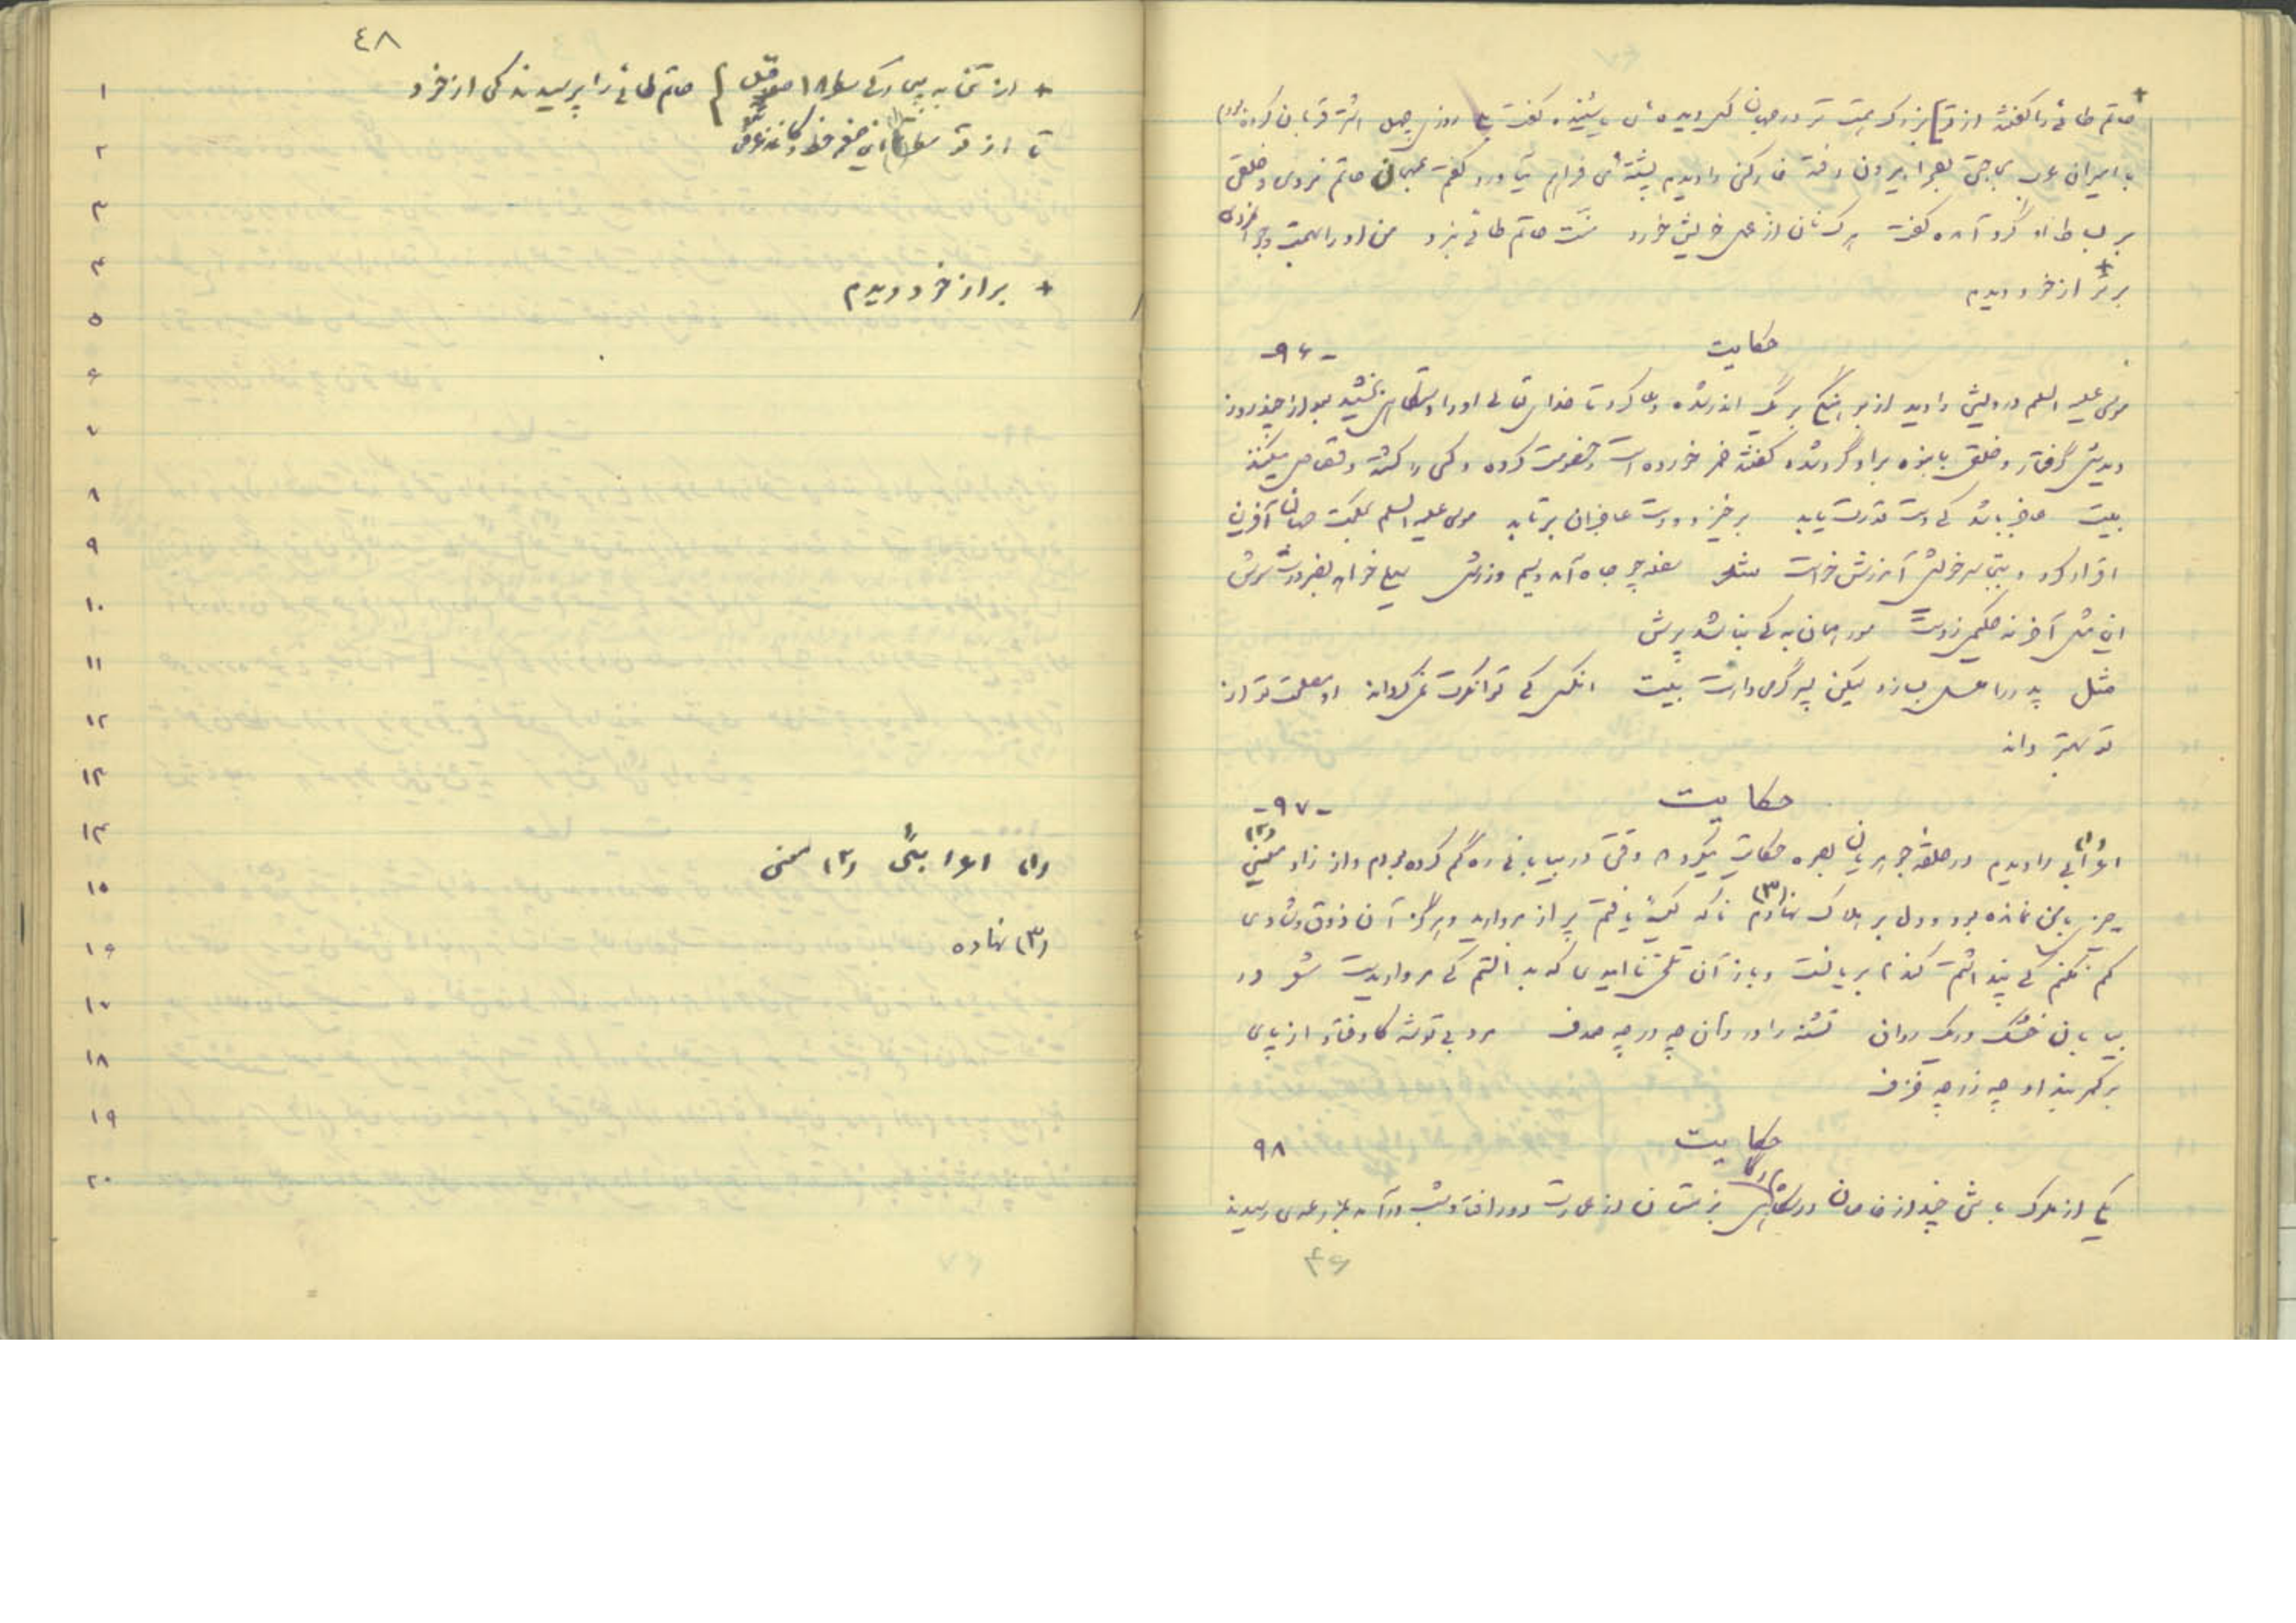 حاتم طائی را گفتند از تو بزرگ همت تر در جهان کس دیده ئی یا شنیده گفت بلی روزی چهل اشتر قربان کرده بودم
با امیران عرب بحاجتی بصحرا بیرون رفته خارکنی را دیدم پشته ئی فراهم می آورد گفتم بمهمان حاتم نروی و خلقی
بر بساط او گرد آمده گفت هر که نان از عمل خویش خورد منت حاتم طائی نبرد من او را بهمت و جوانمردی
برتر از خود دیدم
حکایت -۹۶-
موسی علیه السلم درویشی را دید از برهنگی بریگ اندر شده دعا کرد تا خدای تعالی او را دستگاهی بخشید بعد از چند روز
دیدش گرفتار و خلقی بانبوه بر او گرد شده گفتند خمر خورده است و خصومت کرده و کسی را کشته و قصاص میکنند
بیت عاجز باشد کی دست قدرت یابد برخیزد و دست عاجزان برتابد موسی علیه السلم بحکمت جهان آفرین
اقرار کرد و بتجاسر خویش آمرزش خواست سفله چو جاه آمد و سیم و زرش سیلی خواهد بضرورت سرش
این مثل آخر نه حکیمی زدست مور همان به کی نباشد پرش
مثل پدر را عسل بسیارد لیکن پسر گرمی دارست بیت انکس کی توانگرت نمیگرداند او مصلحت تو از
تو بهتر داند
حکایت -۹۷-
اعرابی(۱) را دیدم در حلقه جوهریان بصره حکایت میکرد کی وقتی در بیابانی ره گم کرده بودم و از زاد معنی(۲)
چیزی با من نمانده بود و دل بر هلاک نهادم(۳) ناگه کیسه یافتم پر از مروارید هرگز آن ذوق و شادی
کم نکنم کی پنداشتم گندم بریانست و باز آن تلخی و ناامیدی که بدانستم کی مرواریدست شعر در
بیابان خشک و ریگ روان تشنه را در دهان چه در چه صدف مرد بی توشه کاوفتاد از پای
بر کمربند او چه زر چه خزف
حکایت ۹۸
یکی از ملوک با تنی چند از خاصان در شکارگاهی بزمستان از عمارت دور افتاد و شب درآمد
۴۶
۴۸
۱ + حاتم طائی را پرسیدند کی از خود
۲ تا از تو
۳
۴ + براز خود دیدم
۵
۶
۷
۸
۹
۱۰
۱۱
۱۲
۱۳
۱۴ (۱) اعرابئی (۲) معنی
۱۵
۱۶ (۳) نهاده
۱۷
۱۸
۱۹
۲۰